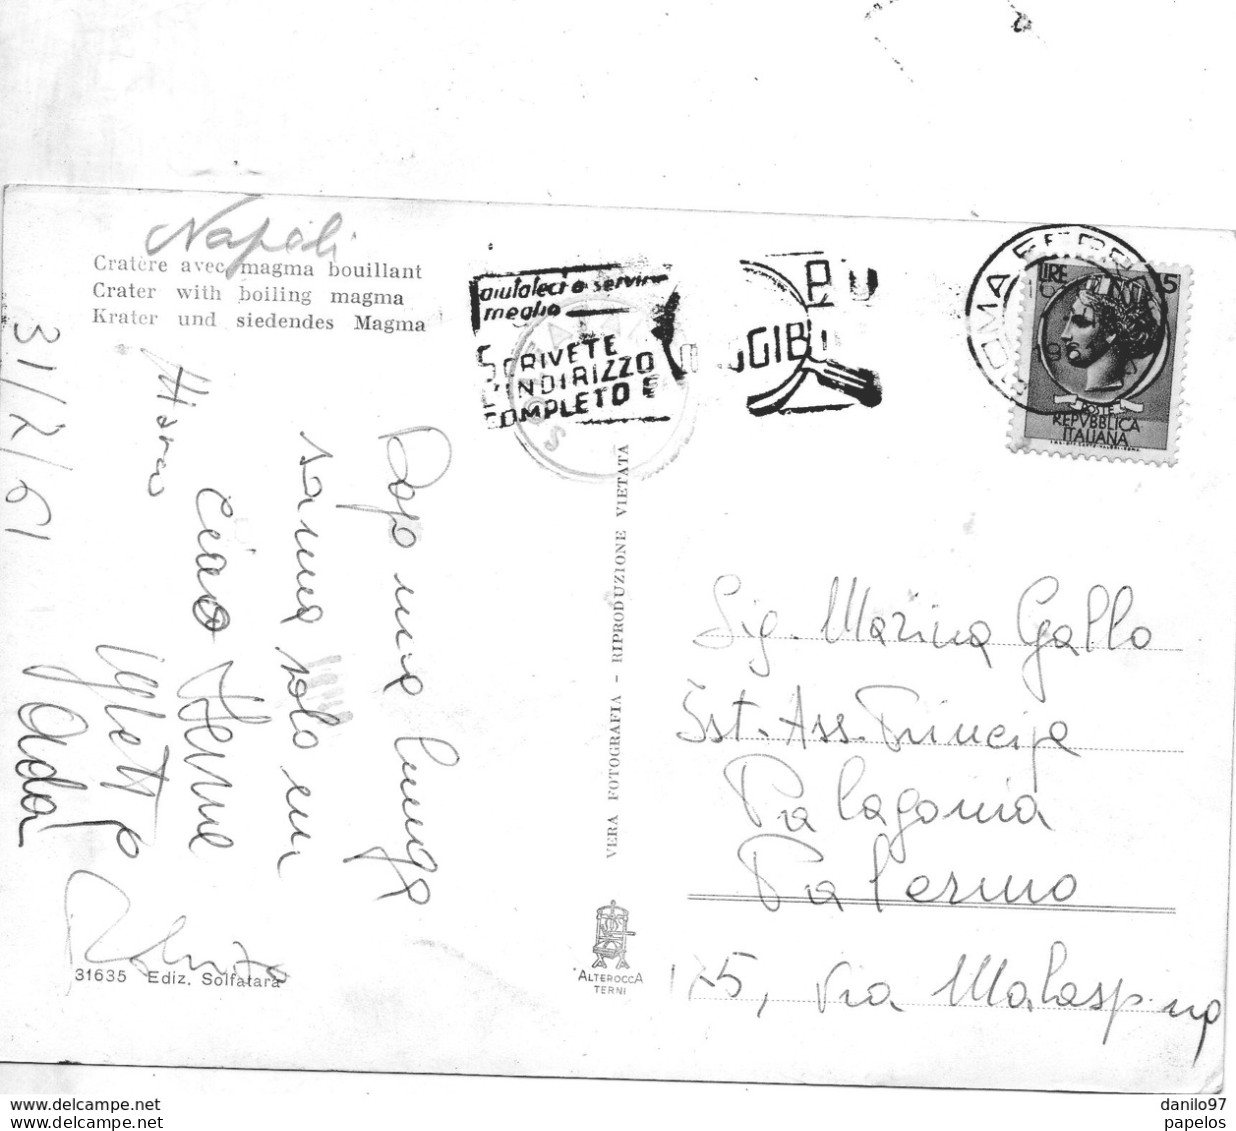 Napoli
Cratère avec magma bouillant
Crater with boiling magma
Krater und siedendes Magma
31/2/61
Dopo una lunga
sauna solo un
Ciao
Ada
31635 Ediz. Solfatara
VERA FOTOGRAFIA - RIPRODUZIONE VIETATA
ALTEROCCA
TERNI
aiutateci a servirvi
meglio
SCRIVETE
L'INDIRIZZO
COMPLETO E
ROMA FERR
LIRE 15
POSTE
REPVBBLICA
ITALIANA
Sig. Marina Gallo
Ist. Ass. Principe
Palagonia
Palermo
175, Via Malaspina
danilo97
papelos
danilo97
papelos